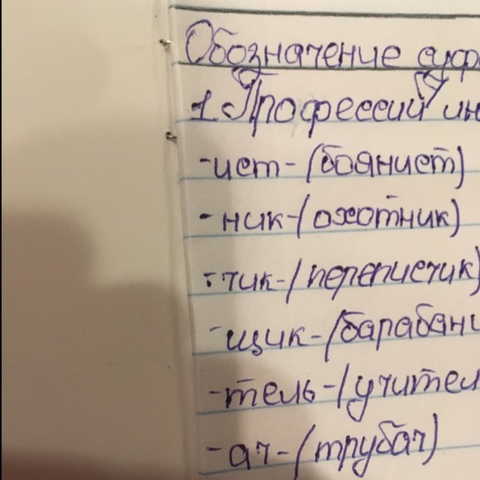 Обозначение суф
1. Профессий ин
-ист-(боянист)
-ник-(охотник)
-чик-(переписчик)
-щик-(барабанщ
-тель-(учител
-ач-(трубач)